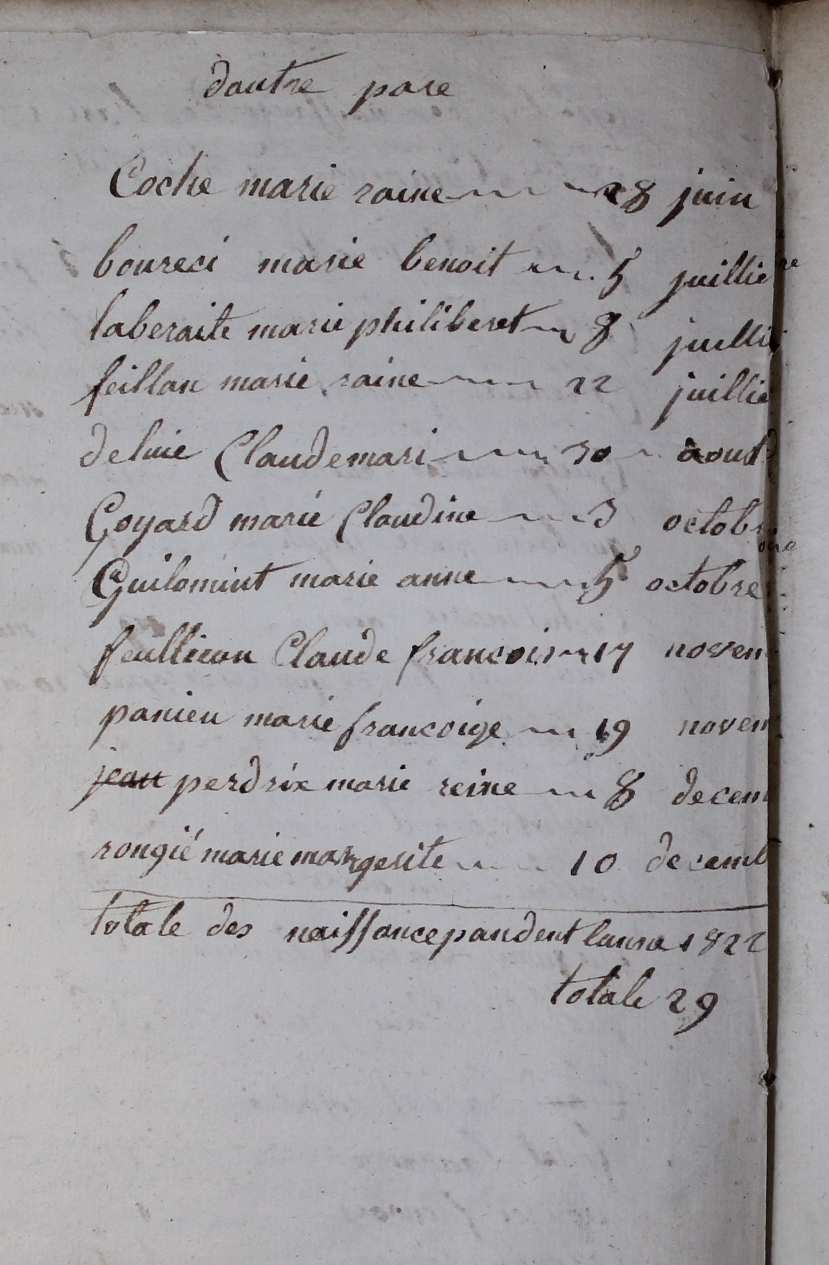 dautre pare
Coche marie raine 28 juin
boureci marie benoit 5 juillie
laberaite marie philiberet 8 juilli
feillan marie raine 22 juillie
deluie Claude mari 30 aout
Goyard marie Claudine 3 octobr
Guilomint marie anne 5 octobre
feullieton Claude francois 17 noven
panieu marie francoige 19 novem
jean perdrix marie reine 8 decem
rongié marie margerite 10 decemb
totale des naissance pandent lanne 1822
totale 29